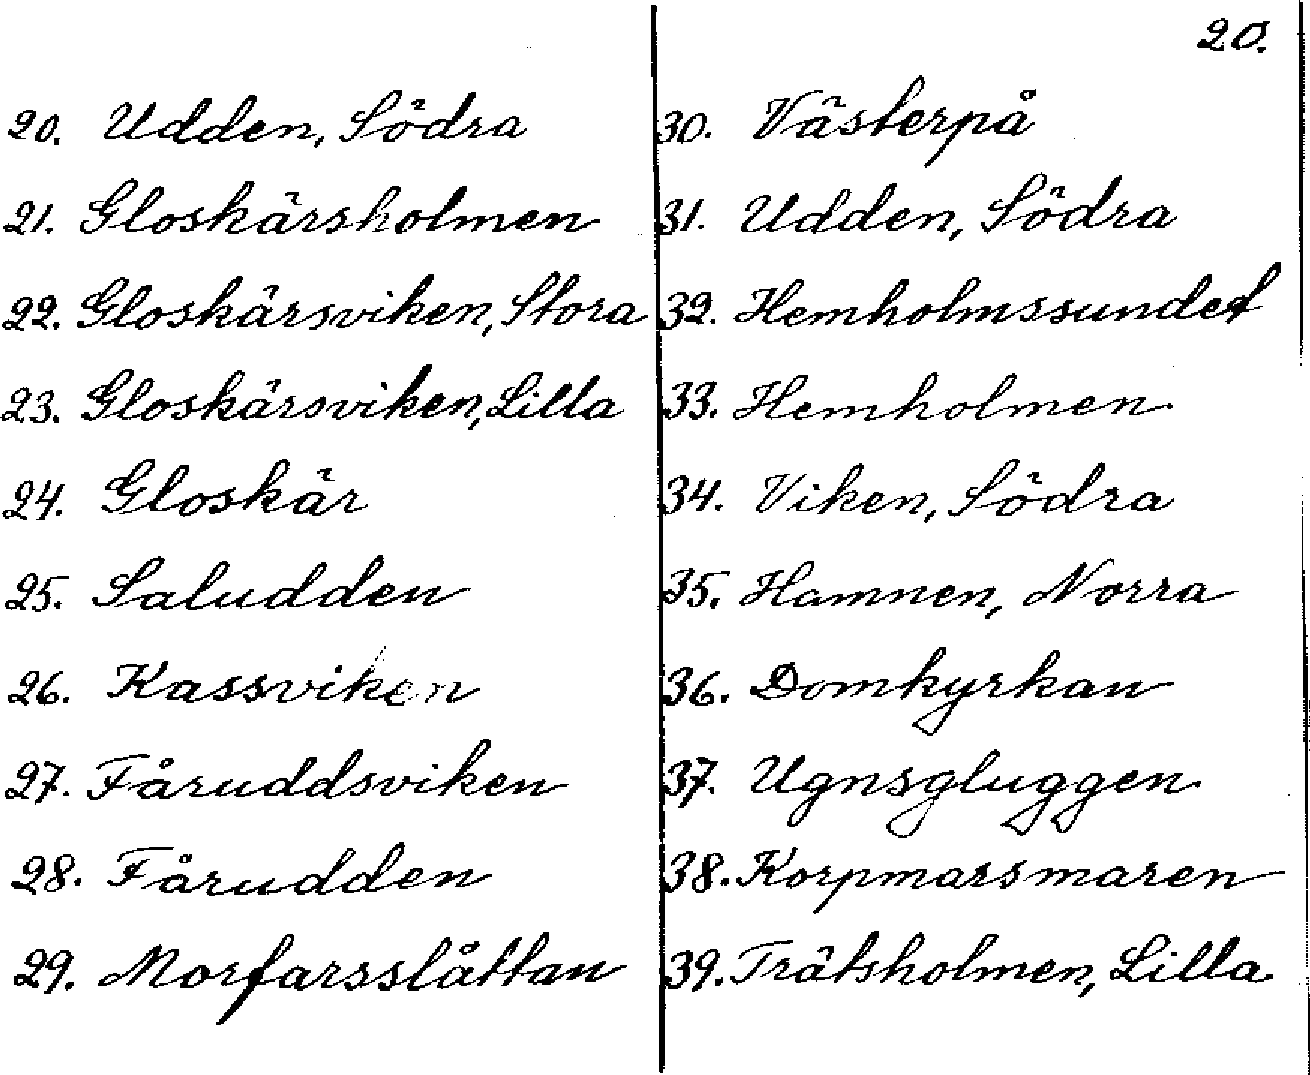 20.
20. Udden, Södra
21. Gloskärsholmen
22. Gloskärsviken, Stora
23. Gloskärsviken, Lilla
24. Gloskär
25. Saludden
26. Kassviken
27. Fåruddsviken
28. Fårudden
29. Morfarsslåttan
30. Västerpå
31. Udden, Södra
32. Hemholmssundet
33. Hemholmen
34. Viken, Södra
35. Hamnen, Norra
36. Domkyrkan
37. Ugnsgluggen
38. Korpmarssmaren
39. Trätsholmen, Lilla